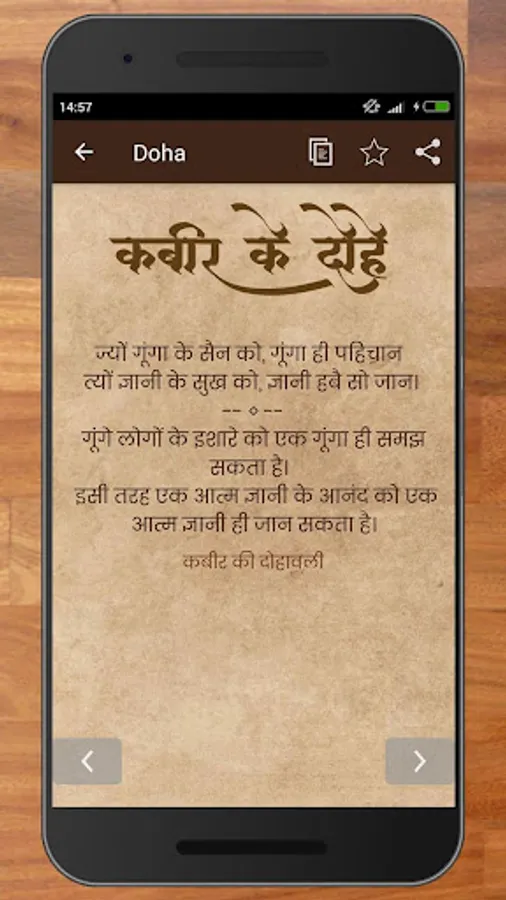 14:57
Doha
कबीर के दोहे
ज्यों गूंगा के सैन को, गूंगा ही पहिचान
त्यों ज्ञानी के सुख को, ज्ञानी हबै सो जान।
-- ० --
गूंगे लोगों के इशारे को एक गूंगा ही समझ
सकता है।
इसी तरह एक आत्म ज्ञानी के आनंद को एक
आत्म ज्ञानी ही जान सकता है।
कबीर की दोहावली